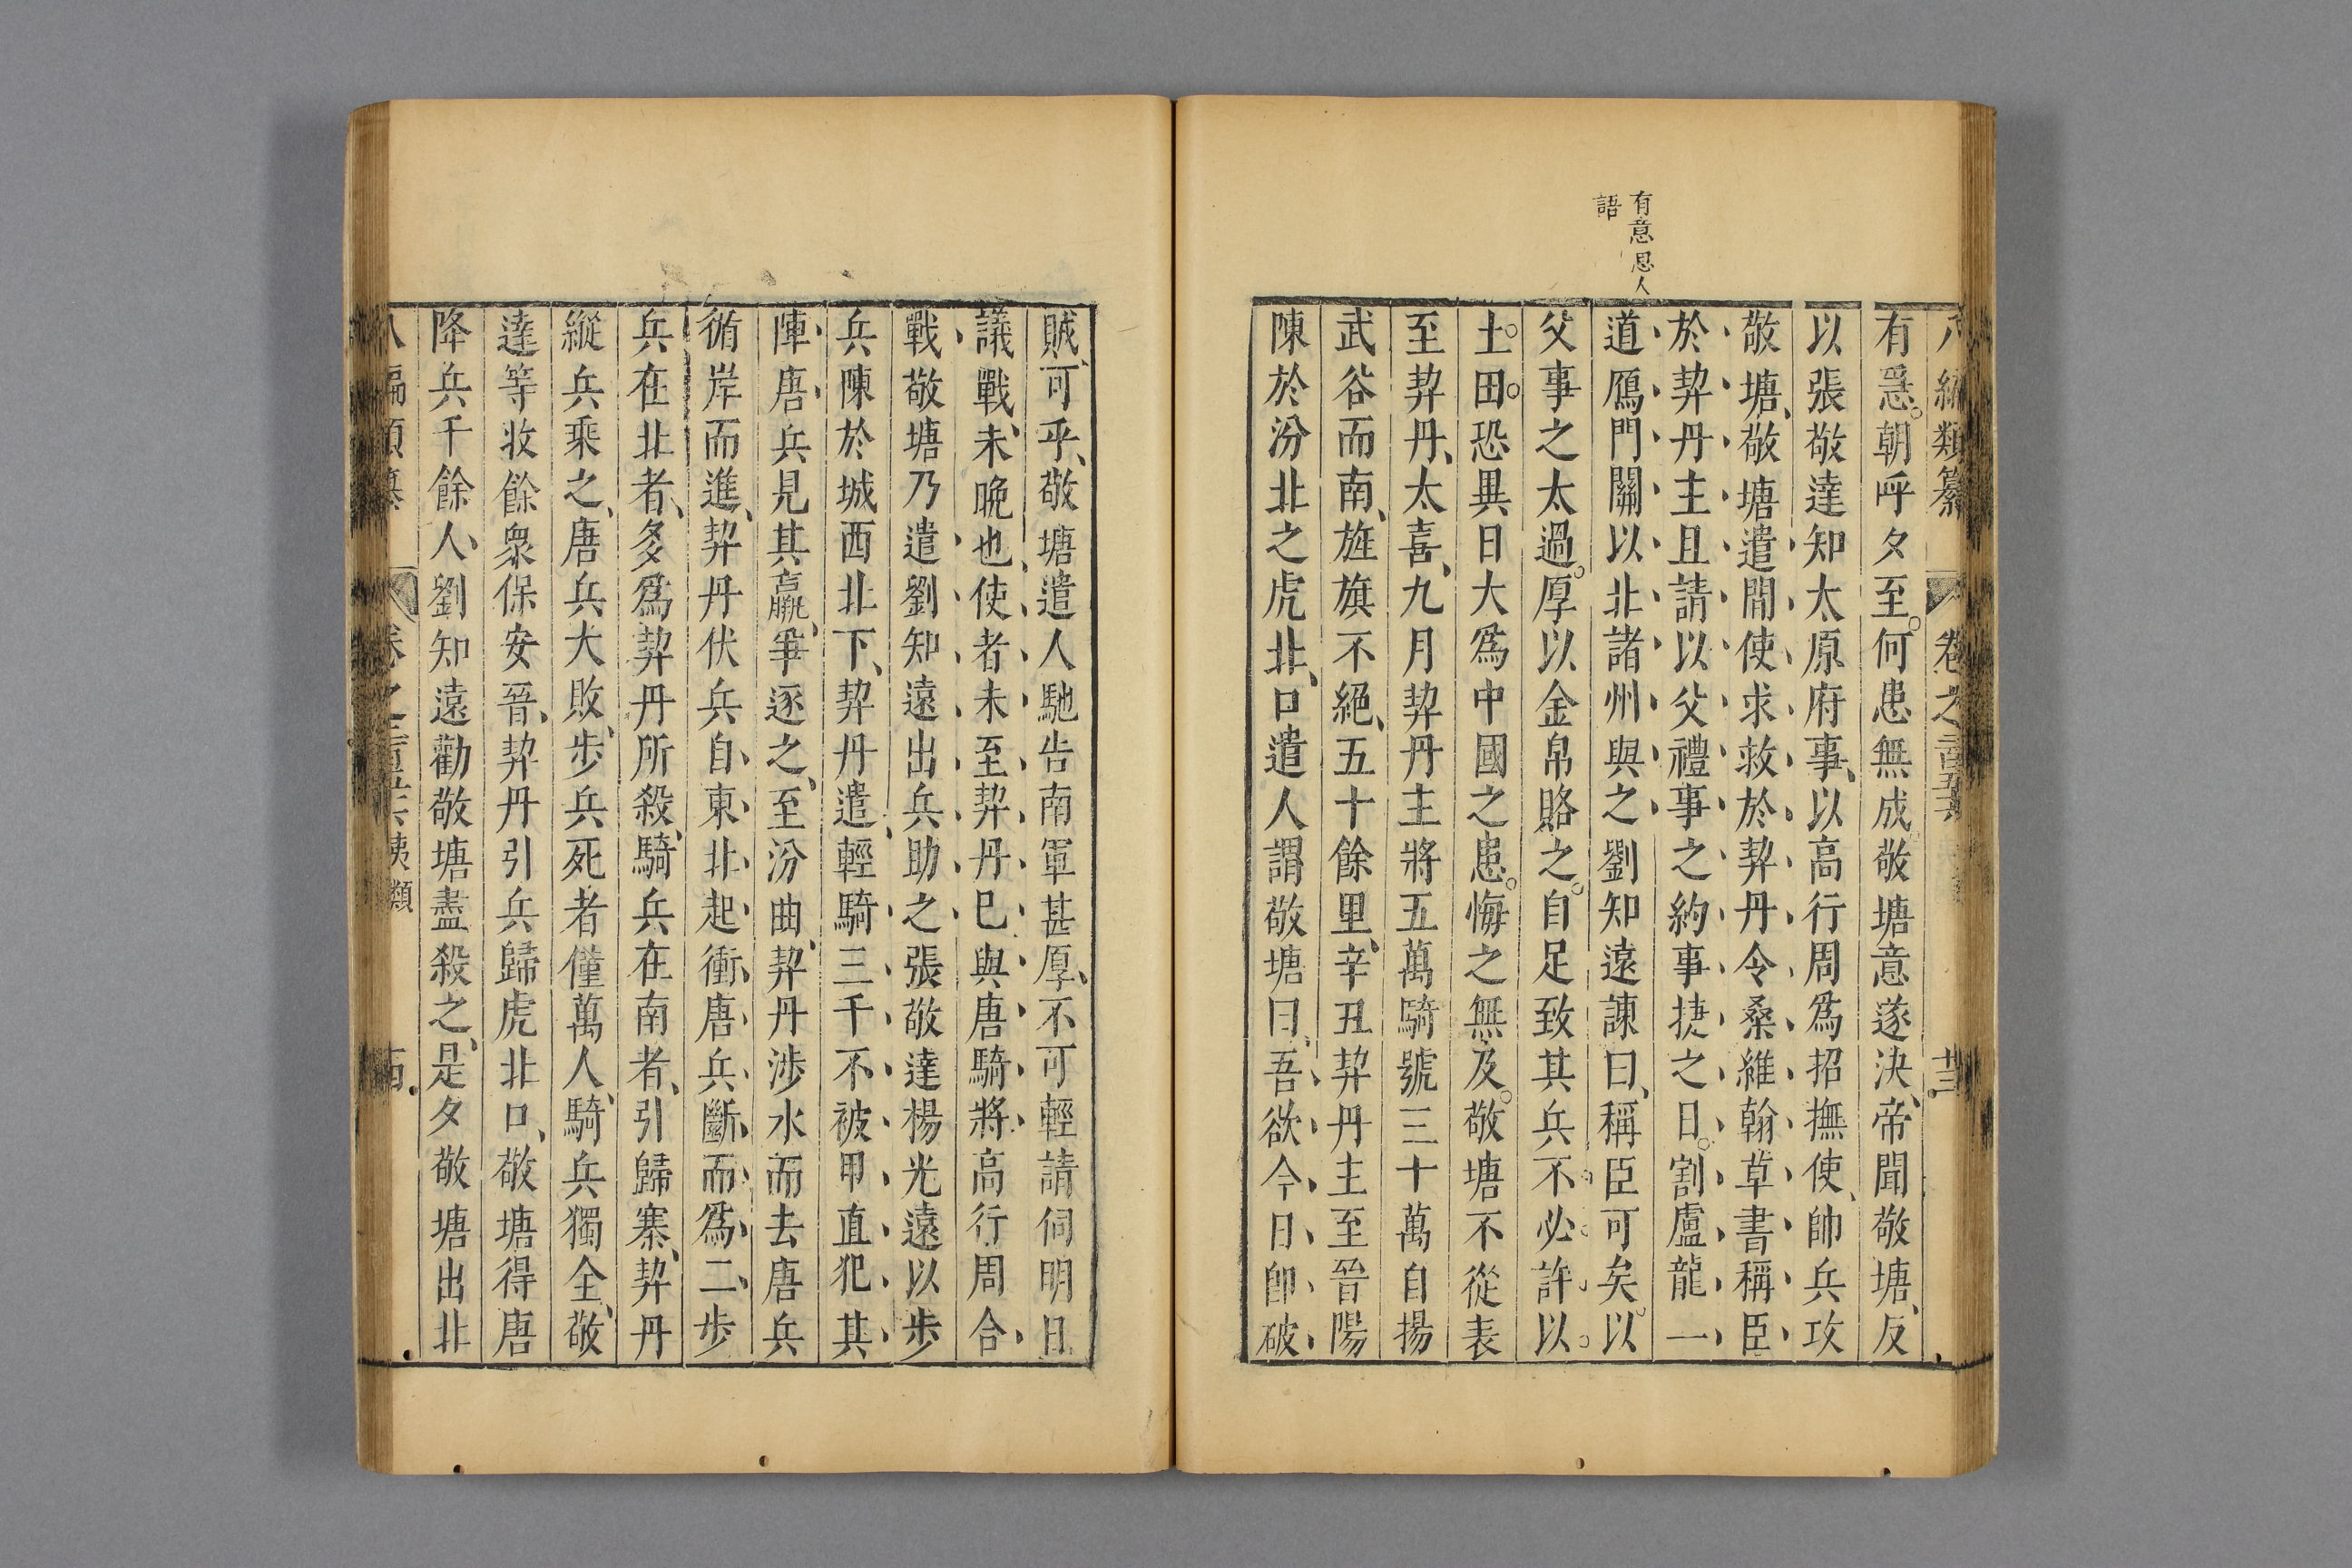 八編類纂 卷之 廿三
有意思人
語
有急。朝呼夕至。何患無成敬塘意遂決、帝聞敬塘、反
以張敬達知太原府事、以高行周爲招撫使、帥兵攻
敬塘、敬塘遣間使求救於契丹令桑維翰草書稱臣
於契丹主且請以父禮事之約事捷之日。割盧龍一
道鴈門關以北諸州與之劉知遠諫曰、稱臣可矣。以
父事之太過。厚以金帛賂之。自足致其兵不必許以
土。田。恐異日大爲中國之患。悔之無及。敬塘不從表
至契丹、太喜、九月契丹主將五萬騎號三十萬自揚
武谷而南、旌旗不絕、五十餘里、辛丑契丹主至晉陽
陳於汾北之虎北、口遣人謂敬塘曰、吾欲今日卽破
賊、可乎、敬塘遣人馳告南軍甚厚、不可輕請伺明日
議戰、未晚也、使者未至契丹巳與唐騎將高行周合
戰敬塘乃遣劉知遠出兵助之張敬達楊光遠以步
兵陳於城西北下、契丹遣輕騎三千不被甲直犯其
陣唐兵見其羸、爭逐之、至汾曲、契丹涉水而去唐兵
循岸而進、契丹伏兵自東北起衝唐兵斷而爲二步
兵在北者、多爲契丹所殺、騎兵在南者、引歸寨、契丹
縱兵乘之、唐兵大敗、步兵死者僅萬人、騎兵獨全、敬
達等收餘衆保安晉、契丹引兵歸虎北口、敬塘得唐
降兵千餘人、劉知遠勸敬塘盡殺之、是夕敬塘出北
八編類纂 卷之 夷類